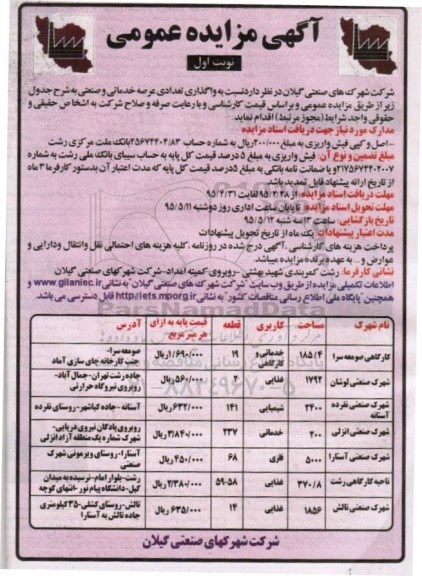 آگهی مزایده عمومی
نوبت اول
شرکت شهرک های صنعتی گیلان در نظر دارد نسبت به واگذاری تعدادی عرصه خدماتی و صنعتی به شرح جدول
زیر از طریق مزایده عمومی و براساس قیمت کارشناسی و با رعایت صرفه و صلاح شرکت به اشخاص حقیقی و
حقوقی واجد شرایط (مجوز مرتبط) اقدام نماید.
مدارک مورد نیاز جهت دریافت اسناد مزایده
- اصل و کپی فیش واریزی به مبلغ ۲۰۰/۰۰۰ ریال به شماره حساب ۲۵۶۷۲۴۰۴/۸۳ بانک ملت مرکزی رشت
مبلغ تضمین و نوع آن: فیش واریزی به مبلغ ۵ درصد قیمت کل پایه به حساب سیبای بانک ملی رشت به شماره
۲۱۷۵۶۷۴۴۰۲۰۰۷ و یا ضمانت نامه بانکی به مبلغ ۵ درصد قیمت کل پایه که مدت اعتبار آن بدستور کارفرما ۳ ماه
از تاریخ ارائه پیشنهاد قابل تمدید باشد.
مهلت دریافت اسناد مزایده: از ۹۵/۴/۲۸ لغایت ۹۵/۴/۳۱
مهلت تحویل اسناد مزایده: تا پایان ساعت اداری روز دوشنبه ۹۵/۵/۱۱
تاریخ بازگشایی: ساعت ۱۳ سه شنبه ۹۵/۵/۱۲
مدت اعتبار پیشنهادات: یک ماه از تاریخ تحویل پیشنهادات
پرداخت هزینه های کارشناسی، آگهی درج شده در روزنامه، کلیه هزینه های احتمالی نقل و انتقال و دارایی و
عوارض و... به عهده برنده مزایده میباشد.
نشانی کارفرما: رشت کمربندی شهید بهشتی - روبروی کمیته امداد - شرکت شهرکهای صنعتی گیلان
اطلاعات تکمیلی مزایده از طریق وب سایت "شرکت شهرک های صنعتی گیلان" به نشانی www.gilaniec.ir و
همچنین "پایگاه ملی اطلاع رسانی مناقصات کشور" به نشانی http://iets.mporg.ir قابل دسترسی می باشد.
ParsNamadData
۰۲۱-۸۸۳۴۹۶۷۰-۵
نام شهرک مساحت کاربری قطعه قیمت پایه به ازای هر متر مربع آدرس
کارگاهی صومعه سرا ۱۸۵/۴ خدماتی و کارگاهی ۱۹ ۱/۶۹۰/۰۰۰ ریال صومعه سرا- جنب کارخانه چای سازی آماد
شهرک صنعتی لوشان ۱۷۹۲ غذایی ۵۶۰/۰۰۰ ریال جاده رشت تهران-جمال آباد- روبروی نیروگاه حرارتی
شهرک صنعتی نقره ده آستانه ۲۴۰۰ شیمیایی ۱۴۱ ۶۳۲/۰۰۰ ریال آستانه - جاده کیاشهر-روستای نقره ده
شهرک صنعتی انزلی ۲۰۰ خدماتی ۲۳۷ ۳/۸۴۰/۰۰۰ ریال روبروی پادگان نیروی دریایی- شهرک شماره یک منطقه آزاد انزلی
شهرک صنعتی آستارا ۵۰۰۰ فلزی ۶۸ ۴۵۰/۰۰۰ ریال آستارا-روستای ویرمونی شهرک صنعتی
ناحیه کارگاهی رشت ۳۷۰/۸ غذایی ۵۸-۵۹ ۲/۳۸۰/۰۰۰ ریال رشت-بلوار امام-نرسیده به میدان گیل-دانشگاه پیام نور-انتهای کوچه
شهرک صنعتی تالش ۱۸۵۶ غذایی ۱۴ ۶۳۵/۰۰۰ ریال تالش-روستای کشلی-۳۵ کیلومتری جاده تالش به آستارا
شرکت شهرکهای صنعتی گیلان